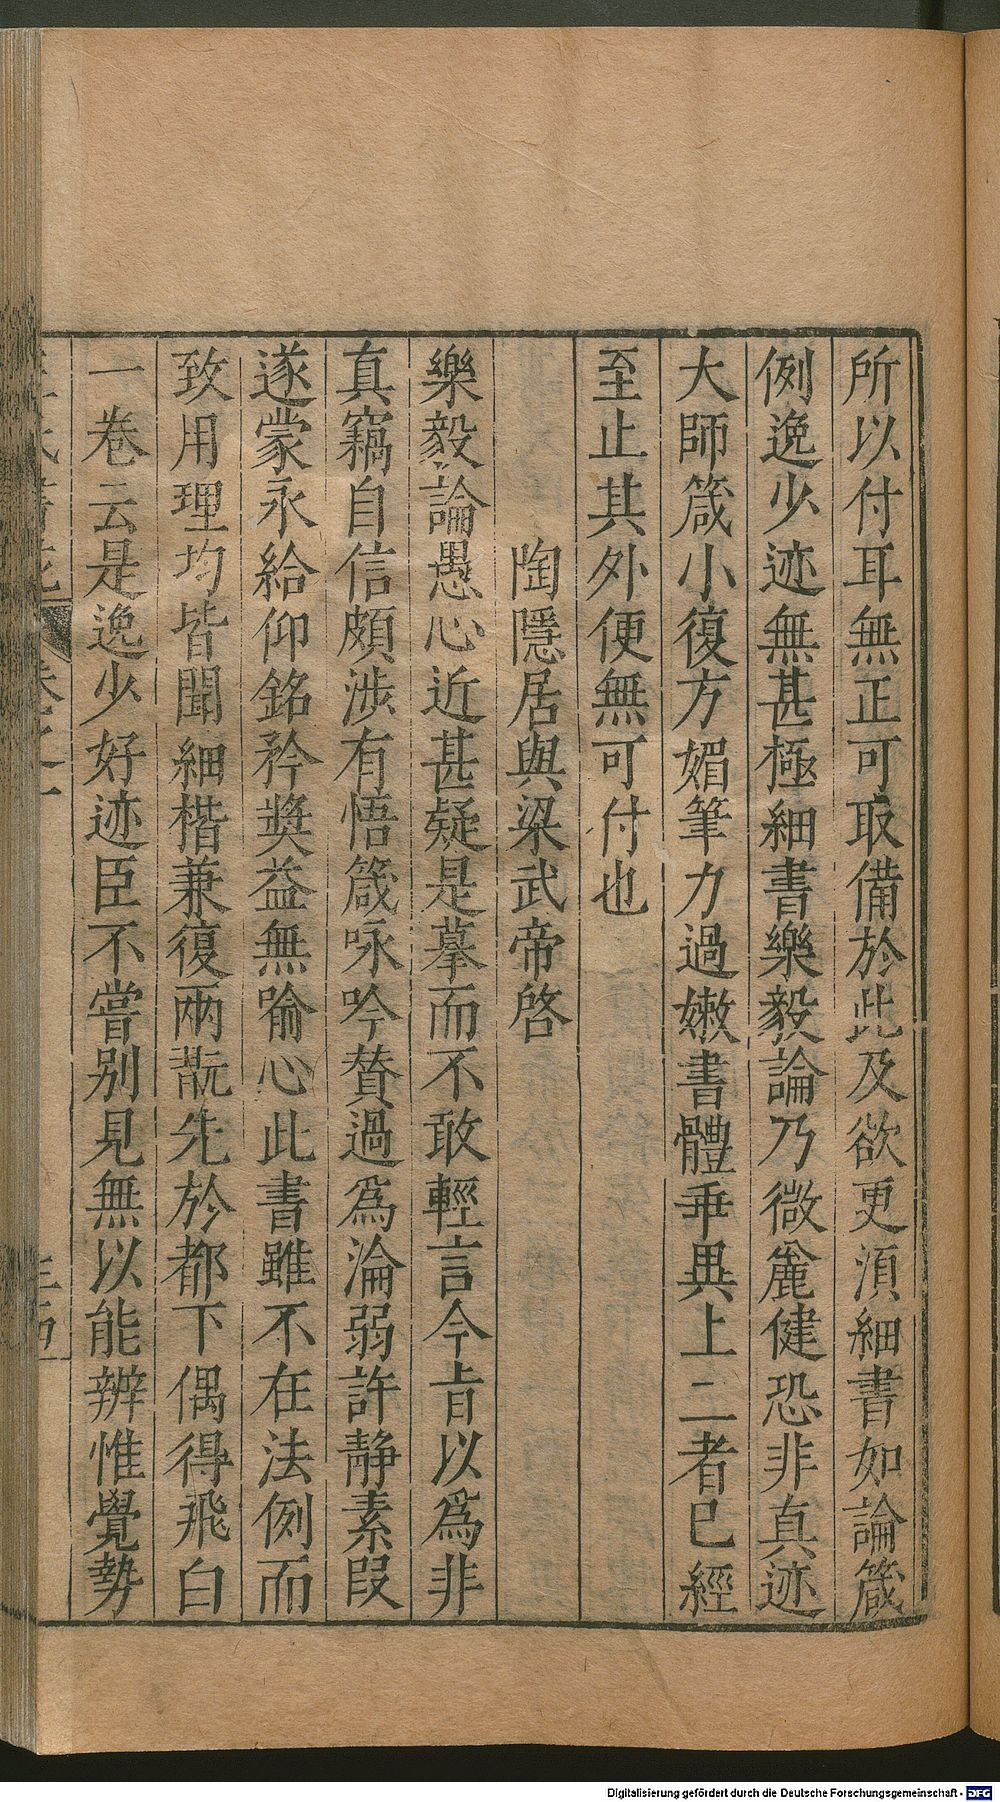 所以付耳無正可取備於此及欲更須細書如論箴
例逸少迹無甚極細書樂毅論乃微麄健恐非真迹
大師箴小復方媚筆力過嫩書體乖異上二者已經
至止其外便無可付也
陶隱居與梁武帝啓
樂毅論愚心近甚疑是摹而不敢輕言今旨以爲非
真竊自信頗涉有悟箴咏吟賛過爲淪弱許靜素段
遂蒙永給仰銘矜奬益無喻心此書雖不在法例而
致用理均皆聞細楷兼復兩翫先於都下偶得飛白
一卷云是逸少好迹臣不嘗别見無以能辨惟覺勢
Digitalisierung gefördert durch die Deutsche Forschungsgemeinschaft - DFG